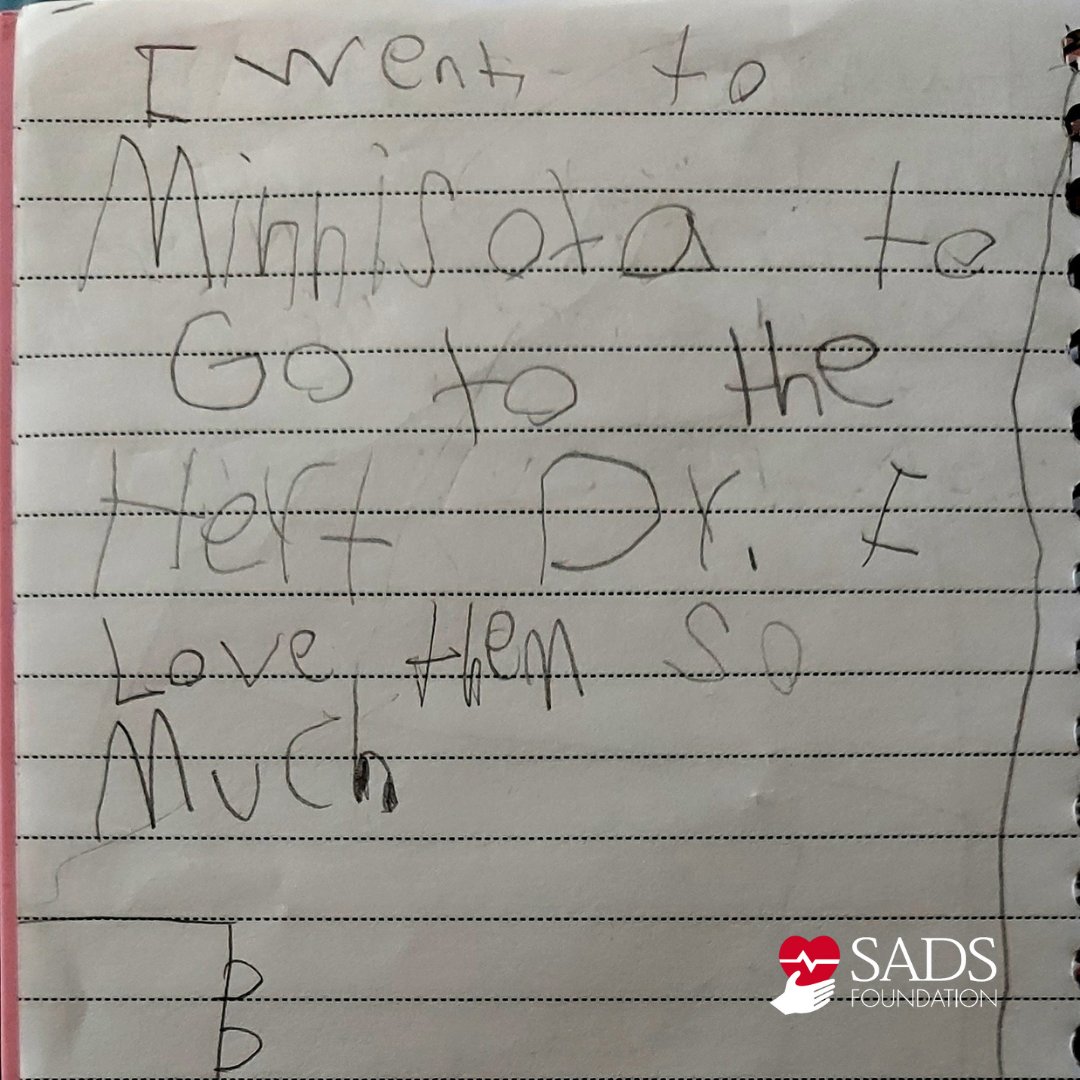 I went to
Minnisota to
Go to the
Hert Dr. I
Love them so
Much
SADS
FOUNDATION